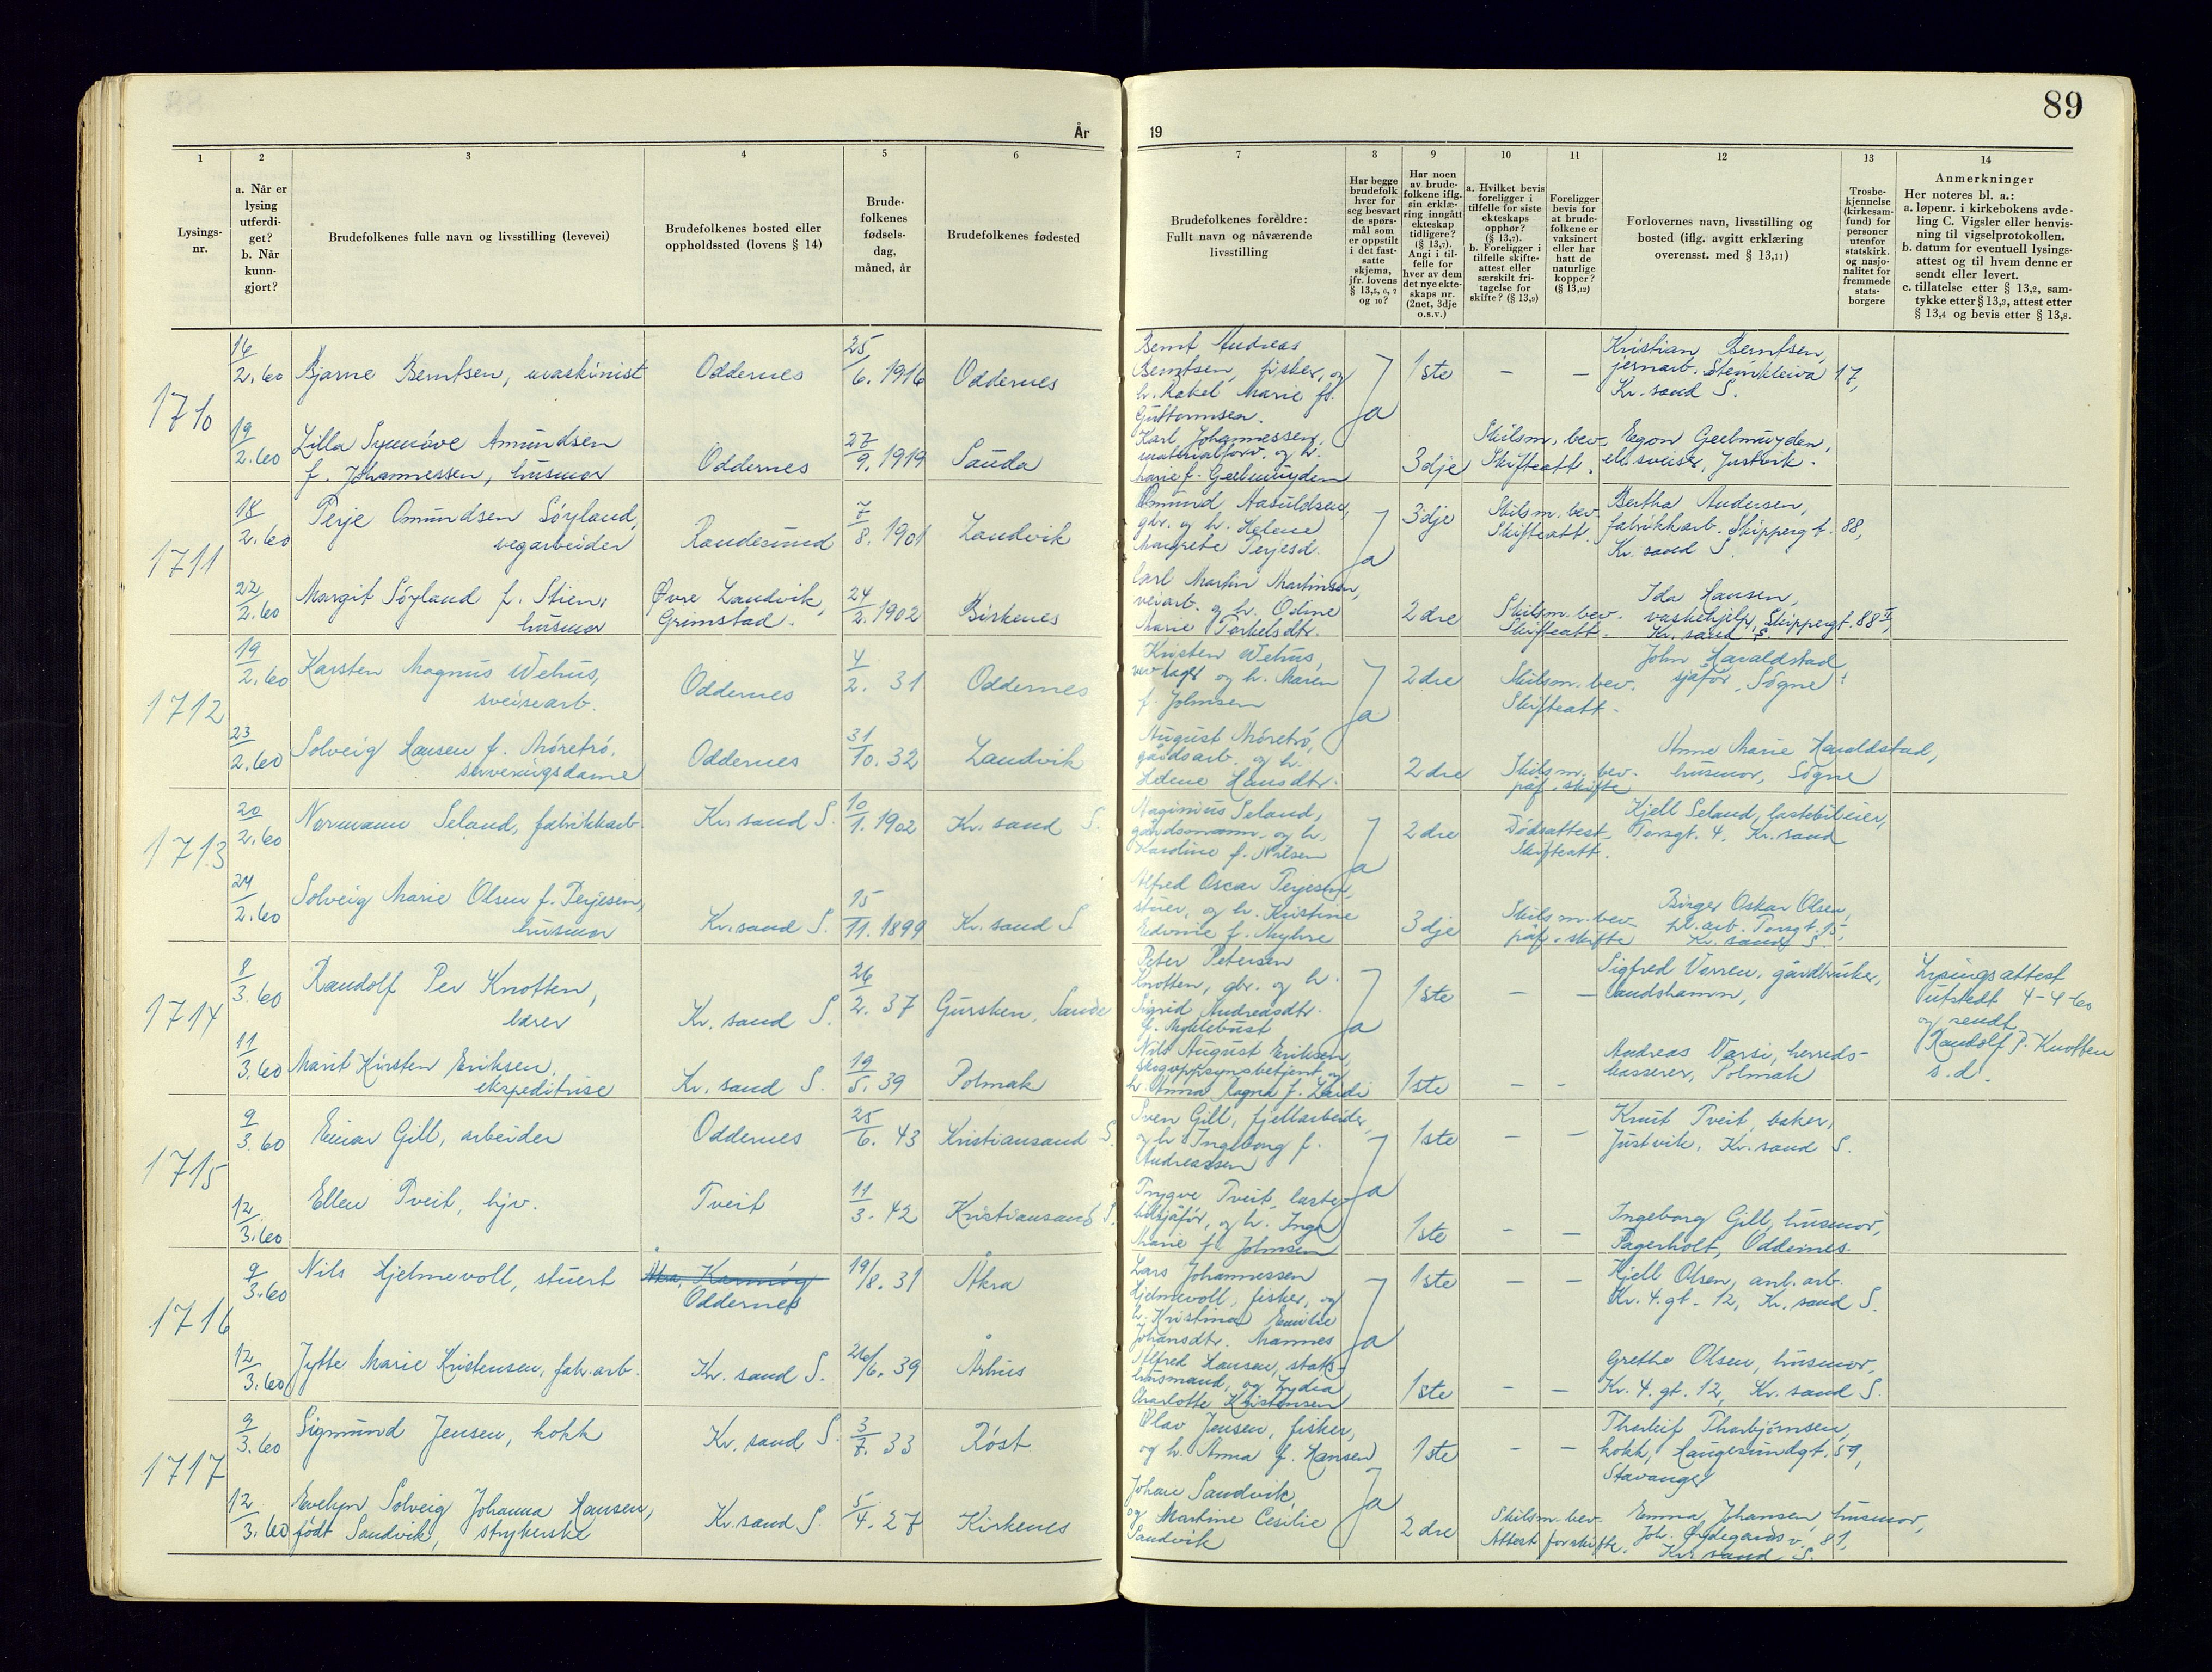 89
År
19
1
2
3
4
5
6
7
8
9
10
11
12
13
14
Lysings-
nr.
a. Når er
lysing
utferdi-
get?
b. Når
kunn-
gjort?
Brudefolkenes fulle navn og livsstilling (levevei)
Brudefolkenes bosted eller
oppholdssted (lovens § 14)
Brude-
folkenes
fødsels-
dag,
måned, år
Brudefolkenes fødested
Brudefolkenes foreldre:
Fullt navn og nåværende
livsstilling
Har begge
brudefolk
hver for
seg besvart
de spørs-
mål som
er oppstilt
i det fast-
satte
skjema,
jfr. lovens
§ 13,5, 6, 7
og 10?
Har noen
av brude-
folkene iflg.
sin erklæ-
ring inngått
ekteskap
tidligere?
(§ 13,7).
Angi i til-
felle for
hver av dem
det nye ekte-
skaps nr.
(2net, 3dje
o.s.v.)
a. Hvilket bevis
foreligger i
tilfelle for siste
ekteskaps
opphør?
(§ 13,7).
b. Foreligger i
tilfelle skifte-
attest eller
særskilt fri-
tagelse for
skifte? (§ 13,9)
Foreligger
bevis for
at brude-
folkene er
vaksinert
eller har
hatt de
naturlige
kopper?
(§ 13,12)
Forlovernes navn, livsstilling og
bosted (iflg. avgitt erklæring
overensst. med § 13,11)
Trosbe-
kjennelse
(kirkesam-
fund) for
personer
utenfor
statskirk.
og nasjo-
nalitet for
fremmede
stats-
borgere
Anmerkninger
Her noteres bl. a.:
a. løpenr. i kirkebokens avde-
ling C. Vigsler eller henvis-
ning til vigselprotokollen.
b. datum for eventuell lysings-
attest og til hvem denne er
sendt eller levert.
c. tillatelse etter § 13,2, sam-
tykke etter § 13,3, attest etter
§ 13,4 og bevis etter § 13,8.
1710
16/2.60 Bjarne Berntsen, maskinist Oddernes 25/6. 1916 Oddernes
Bernt Andreas
Berntsen, fisker, og
h. Rakel Marie f.
Guttormsen.
Ja
1ste – –
Kristian Berntsen,
jernarb. Steinkleiva 17,
Kr. sand S.
19/2.60 Zilla Synnöve Amundsen
f. Johannessen, husmor
Oddernes 27/9. 1919 Sauda
Karl Johannessen,
materialforv. og h.
Marie f. Geelmuyden
3dje
Skilsm. bev.
Skifteatt.
Egon Geelmuyden,
el. sveiser, Justvik.
1711
18/2.60 Terje Omundsen Söyland,
vegarbeider
Randesund 7/8. 1901 Landvik
Omund Aasuldsen,
gbr. og h. Helene
Margrete Terjesd.
Ja
3dje
Skilsm. bev.
Skifteatt.
Bertha Andersen,
fabrikkarb. Skippergt. 88,
Kr. sand S.
22/2.60 Margit Söyland f. Stien,
husmor
Øvre Landvik,
Grimstad.
24/2. 1902 Birkenes
Carl Martin Martinsen,
veiarb. og h. Odine
Marie Torkelsdtr.
2dre
Skilsm. bev.
Skifteatt.
Ida Hansen,
vaskehjelp, Skippergt. 88 II,
Kr. sand S.
1712
19/2.60 Karsten Magnus Wehus,
sveisearb.
Oddernes 4/2. 31 Oddernes
Kristen Wehus,
og h. Maren
f. Johnsen
Ja
2dre
Skilsm. bev.
Skifteatt.
John Haraldstad
sjåför, Sögne
23/2.60 Solveig Hansen f. Möretrö,
serveringsdame
Oddernes 31/10. 32 Landvik
August Möretrö,
gårdsarb. og h.
Helene Hansdtr.
2dre
Skilsm. bev.
påf. skifte
Anne Marie Haraldstad,
husmor, Sögne
1713
20/2.60 Normann Seland, fabrikkarb. Kr. sand S. 10/1. 1902 Kr. sand S.
Maginius Seland,
gårdsmann, og h.
Karoline f. Nilsen
Ja
2dre
Dödsattest,
Skifteatt.
Kjell Seland, lastebileier,
Torsgt. 4, Kr. sand
24/2.60 Solveig Marie Olsen f. Terjesen,
husmor
Kr. sand S. 15/11. 1899 Kr. sand S
Alfred Oscar Terjesen,
stuer, og h. Kristine
f. Myhre
3dje
Skilsm. bev.
påf. skifte
Birger Oskar Olsen,
arb. Torsgt. 15,
Kr. sand S.
1714
8/3.60 Randolf Per Knotten,
lærer
Kr. sand S. 26/2. 37 Gursken, Sande
Peter Petersen
Knotten, gbr. og h.
Sigrid Andreasdtr.
f. Myklebust
Ja
1ste – –
Sigfred Vorren, gårdbruker,
Landshamn,
Lysingsattest
utstedt 4-4-60
og sendt
Randolf P. Knotten
s.d.
11/3.60 Marit Kirsten Eriksen,
ekspeditrise
Kr. sand S. 19/5. 39 Polmak
Nils August Eriksen,
skogoppsynsbetjent og
h. Anna Ragna f. Laiti
1ste – –
Andreas Varsi, herreds-
kasserer, Polmak
1715
9/3.60 Einar Gill, arbeider Oddernes 25/6. 43 Kristiansand S.
Sven Gill, fjellarbeider,
og h. Ingeborg f.
Andreassen
Ja
1ste – –
Knut Tveit, baker,
Justvik, Kr. sand S.
12/3.60 Ellen Tveit, hjv. Tveit 11/3. 42 Kristiansand S.
Trygve Tveit, laste-
bilsjåför, og h. Inga
Marie f. Johnsen
1ste – –
Ingeborg Gill, husmor,
Fagerholt, Oddernes.
1716
9/3.60 Nils Hjelmevoll, stuert Åkra, Karmöy
Oddernes
19/8. 31 Åkra
Lars Johannessen
Hjelmevoll, fisker, og
h. Kristina Emilie
Johansdtr. Mannes
Ja
1ste – –
Kjell Olsen, anl. arb.
Kr. 4. gt. 12, Kr. sand S.
12/3.60 Jytte Marie Kristensen, fabr. arb. Kr. sand S. 26/6. 39 Århus
Alfred Hansen, stats-
husmand, og Lydia
Charlotte Kristensen
1ste – –
Grethe Olsen, husmor,
Kr. 4. gt. 12, Kr. sand S.
1717
9/3.60 Sigmund Jensen, kokk Kr. sand S. 3/8. 33 Röst
Olav Jensen, fisker,
og h. Anna f. Hansen
Ja
1ste – –
Thorleif Thorbjörnsen,
kokk, Haugesundgt. 59,
Stavanger
12/3.60 Evelyn Solveig Johanna Hansen,
födt Sandvik, strykerske
Kr. sand S. 5/4. 27 Kirkenes
Johan Sandvik,
og Martine Cesilie
Sandvik
2dre
Skilsm. bev.
Attest for skifte.
Emma Johansen, husmor,
Joh. Ødegaards v. 81,
Kr. sand S.